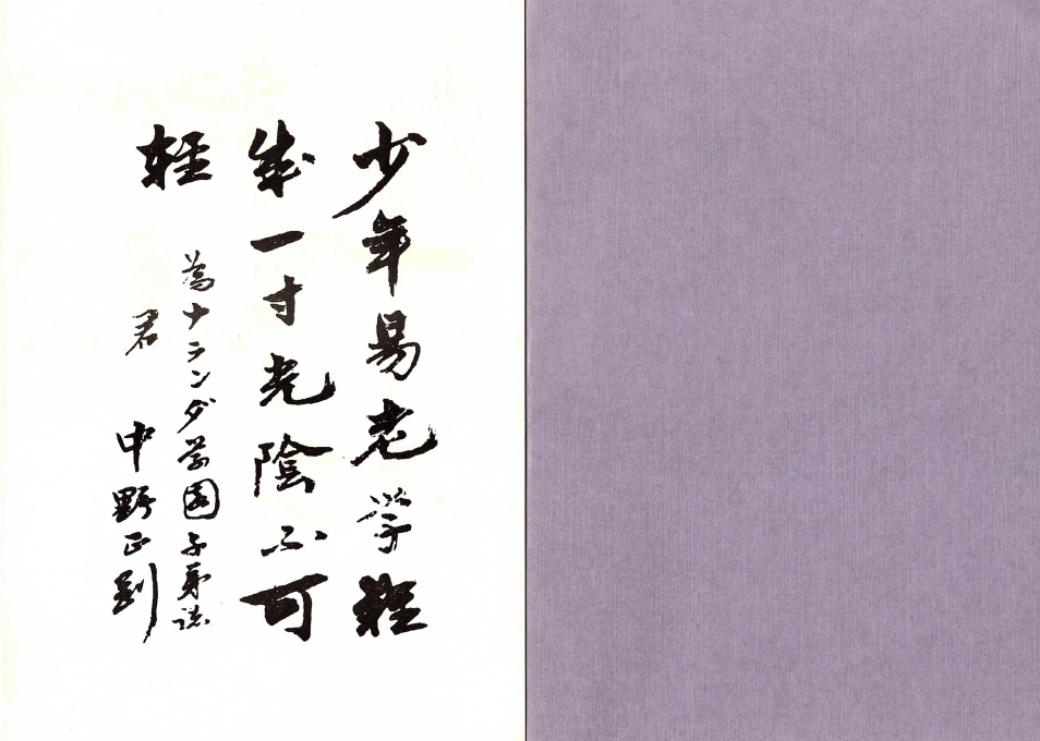 少年易老学難
成一寸光陰不可
軽
為ナランダ学園子弟諸
君 中野正剛